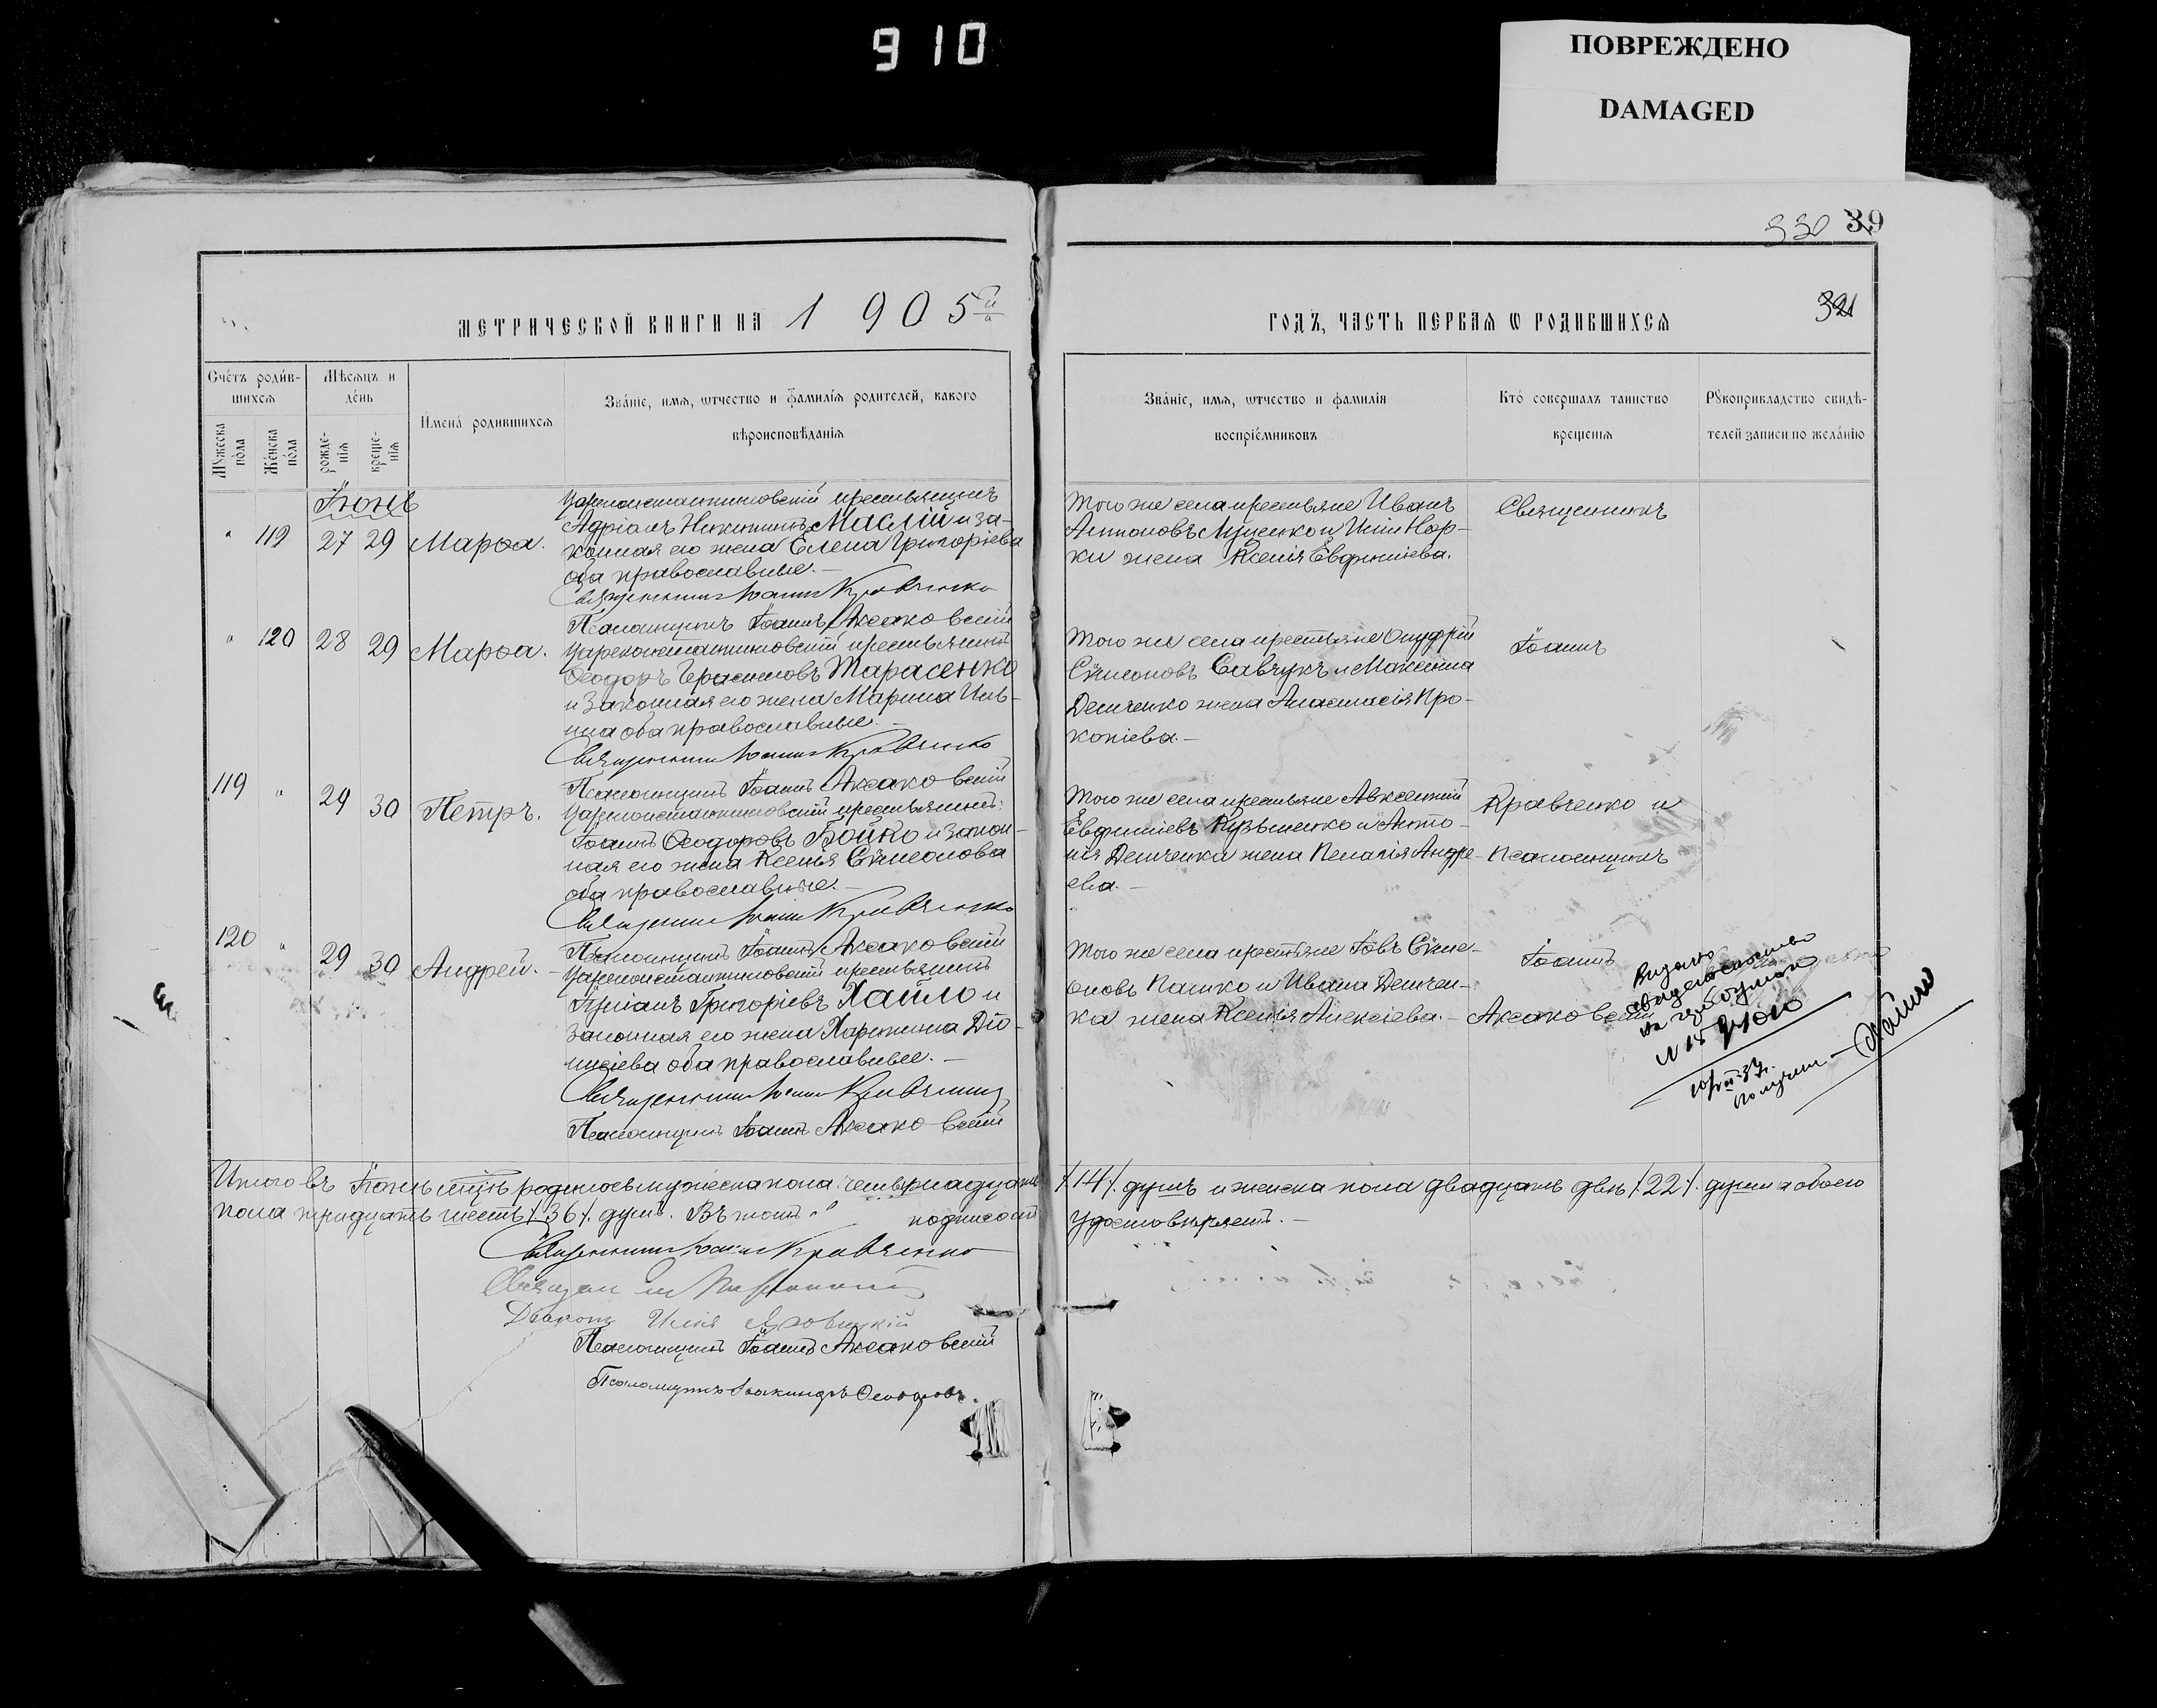 910
ПОВРЕЖДЕНО
DAMAGED
330 39
321
МЕТРИЧЕСКОЙ КНИГИ НА 1905й
ГОДЪ, ЧАСТЬ ПЕРВАЯ Ѡ РОДИВШИХСЯ
Счетъ родив-
шихся
Мѣсяцъ и
день
Мꙋжеска пола
Женска пола
рожде-
нія
креще-
нія
Имена родившихся
Званіе, имя, ѡтчество и фамилія родителей, какого
вѣроисповѣданія
Званіе, имя, ѡтчество и фамилія
воспріемниковъ
Кто совершалъ таинство
крещенія
Рꙋкоприкладство свидѣ-
телей записи по желанію
Іюнь
" 119 27 29 Марѳа.
Цареконстантиновскій крестьянинъ
Адріанъ Никитинъ Маслій и за-
конная его жена Елена Григоріева
оба православные.
Священникъ Іоаннъ Кравченко
Псаломщикъ Іоаннъ Аксаковскій
Того же села крестьяне Иванъ
Антоновъ
жена Ксенія Евфиміева.
Священникъ
" 120 28 29 Марѳа.
Цареконстантиновскій крестьянинъ
Ѳеодоръ Герасимовъ Тарасенко
и законная его жена Марина Иль-
ина оба православные.
Священникъ Іоаннъ Кравченко
Псаломщикъ Іоаннъ Аксаковскій
Того же села крестьяне Онуфрій
Сѵмеоновъ Савчукъ и Максима
Демченко жена Анастасія Про-
копіева.
Іоаннъ
119 " 29 30 Петръ.
Цареконстантиновскій крестьянинъ
Іоаннъ Ѳеодоровъ Бойко и закон-
ная его жена Ксенія Сѵмеонова
оба православные.
Священникъ Іоаннъ Кравченко
Псаломщикъ Іоаннъ Аксаковскій
Того же села крестьяне Авксентій
Евфиміевъ Кузьменко и Анто-
нія Демченка жена Пелагія Андре-
ева.
Кравченко и
Псаломщикъ
120 " 29 30 Андрей.
Цареконстантиновскій крестьянинъ
Григоріевъ Хайло и
законная его жена Харитина Діо-
нисіева оба православные.
Священникъ Іоаннъ Кравченко
Псаломщикъ Іоаннъ Аксаковскій
Того же села крестьяне Іовъ Сѵме-
оновъ Пашко и Ивана Демчен-
ка жена Ксенія Алексіева.
Іоаннъ
Аксаковскій
Видано
получил Хайло
Итого въ Іюнь мцѣ родилось мужеска пола четырнадцать /14/. душъ и женска пола двадцать двѣ /22/. души а обоего
пола тридцать шесть /36/. душъ. Въ томъ подписомъ удостовѣряемъ.
Священникъ Іоаннъ Кравченко
Діаконъ Илія
Псаломщикъ Іоаннъ Аксаковскій
Псаломщикъ Ѳеодоровъ